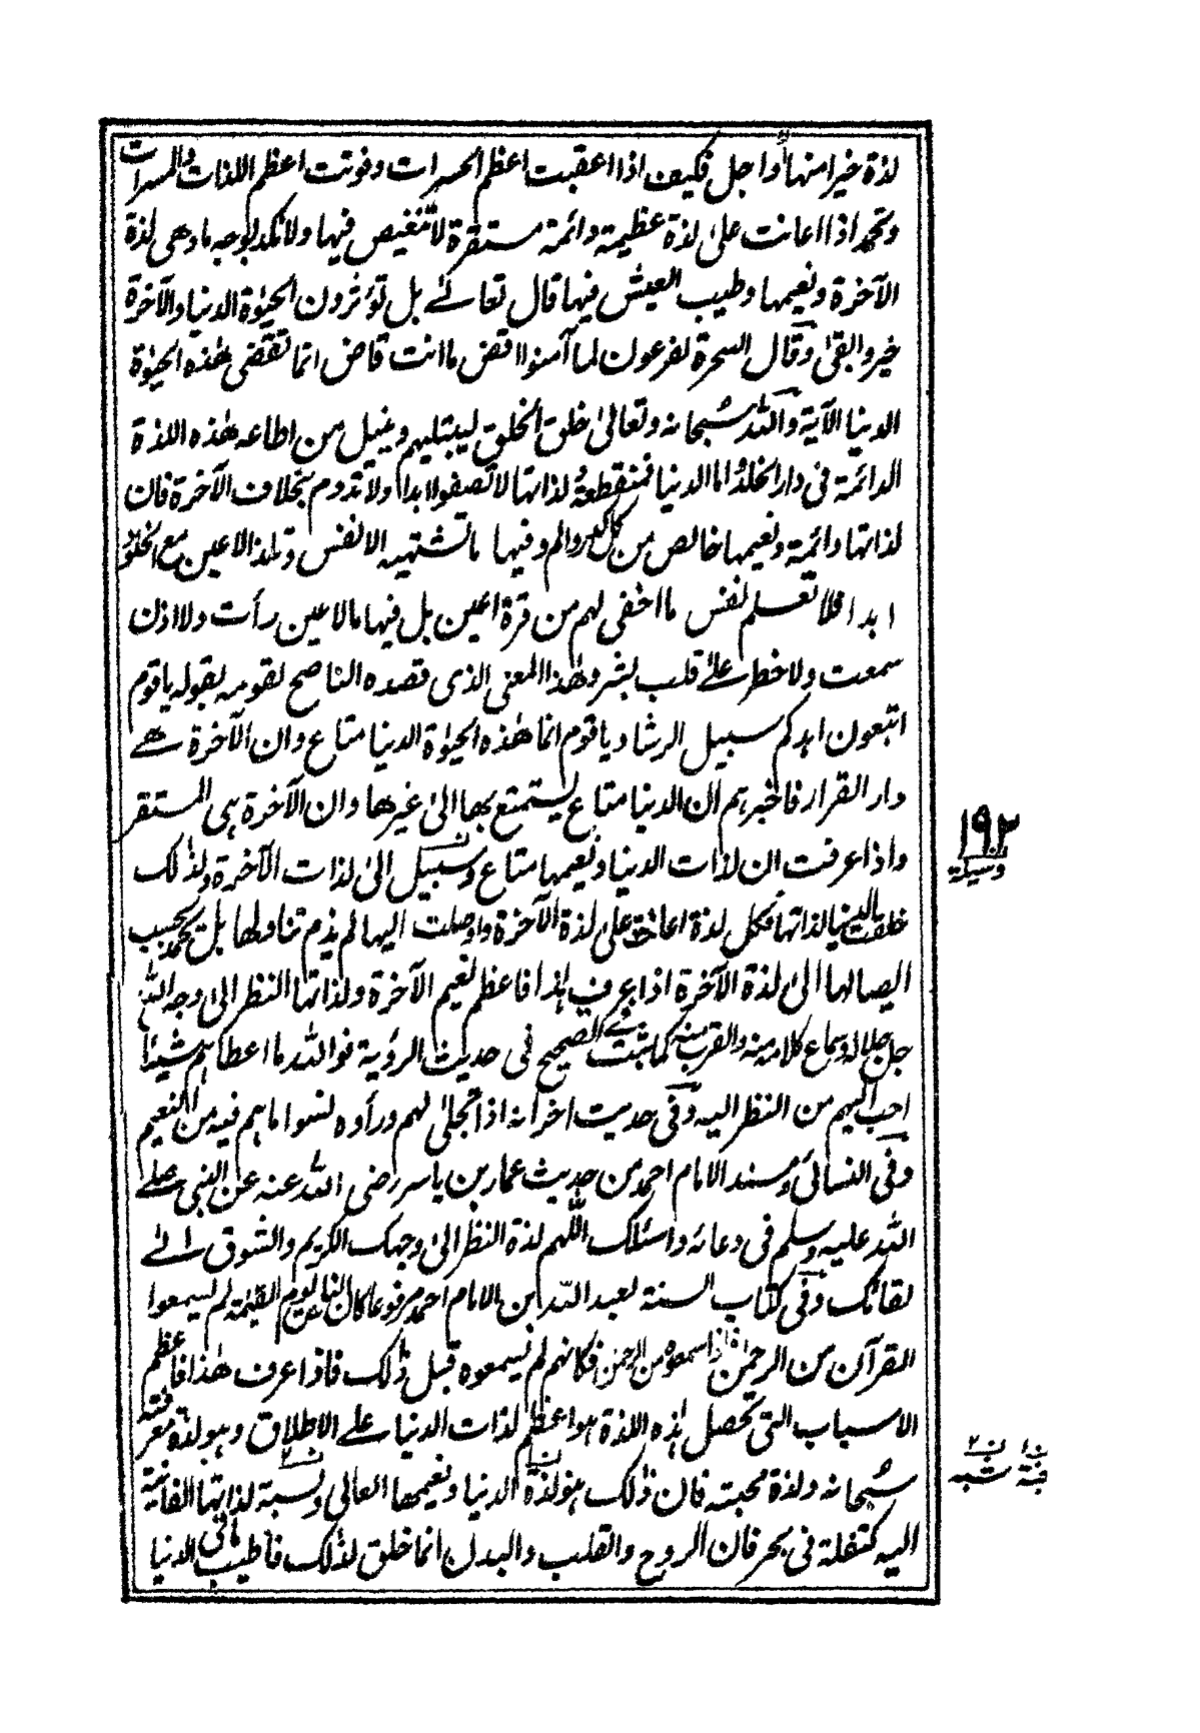 لذة خيرا منها وا جل فكيف اذا اعقبت اعظم الحسرات وفوتت اعظم اللذات والمسرات
وتحمد اذا اعانت على لذة عظيمة دائمة مستقرة لا تنغيص فيها ولا نكد بوجه ما وهى لذة
الآخرة ونعيمها وطيب العيش فيها قال تعالى بل تؤثرون الحيوة الدنيا والآخرة
خير وابقى وقال السحرة لفرعون لما آمنوا اقض ما انت قاض انما تقضى هذه الحيوة
الدنيا الآية والله سبحانه وتعالى خلق الخلق ليبتليهم وينيل من اطاعه هذه اللذة
الدائمة فى دار الخلد اما الدنيا فمنقطعة لذاتها لا تصفو لا بدا ولا تدوم بخلاف الآخرة فان
لذاتها دائمة ونعيمها خالص من كل كدر والم وفيها ما تشتهيه الانفس وتلذ الاعين مع الخلود
ابدا فلا تعلم نفس ما اخفى لهم من قرة اعين بل فيها ما لا عين رأت ولا اذن
سمعت ولا خطر على قلب بشر وهذا المعنى الذى قصده الناصح لقومه بقوله يا قوم
اتبعون اهدكم سبيل الرشاد يا قوم انما هذه الحيوة الدنيا متاع وان الآخرة هى
دار القرار فاخبرهم ان الدنيا متاع يستمتع بها الى غيرها وان الآخرة هى المستقر
واذا عرفت ان لذات الدنيا ونعيمها متاع وسبيل الى لذات الآخرة ولذلك
خلقت الدنيا لذاتها فكل لذة اعانت على لذة الآخرة واوصلت اليها لم يذم تناولها بل تحمد بحسب
ايصالها الى لذة الآخرة اذا عرف هذا فاعظم نعيم الآخرة ولذاتها النظر الى وجه الله
جل جلاله وسماع كلامه منه والقرب منه كما ثبت فى الصحيح فى حديث الرؤية فوالله ما اعطاهم شيئا
احب اليهم من النظر اليه وفى حديث اخر انه اذا تجلى لهم ورأوه نسوا ما هم فيه من النعيم
وفى النسائى ومسند الامام احمد من حديث عمار بن ياسر رضى الله عنه عن النبى صلى
الله عليه وسلم فى دعائه واسئلك اللهم لذة النظر الى وجهك الكريم والشوق الى
لقائك وفى كتاب السنة لعبد الله ابن الامام احمد مرفوعا كان الناس يوم القيمة لم يسمعوا
القرآن من الرحمن اذا سمعوه من الرحمن فكانهم لم يسمعوه قبل ذلك فاذا عرف هذا فاعظم
الاسباب التى تحصل هذه اللذة هو اعظم لذات الدنيا على الاطلاق وهو لذة معرفته
سبحانه ولذة محبته فان ذلك هو لذة الدنيا ونعيمها العالى ونسبة لذاتها الفانية
اليه كتفلة فى بحر فان الروح والقلب والبدن انما خلق لذلك فاطيب ما فى الدنيا
١٩٢
وسيلة
جنة نسبه